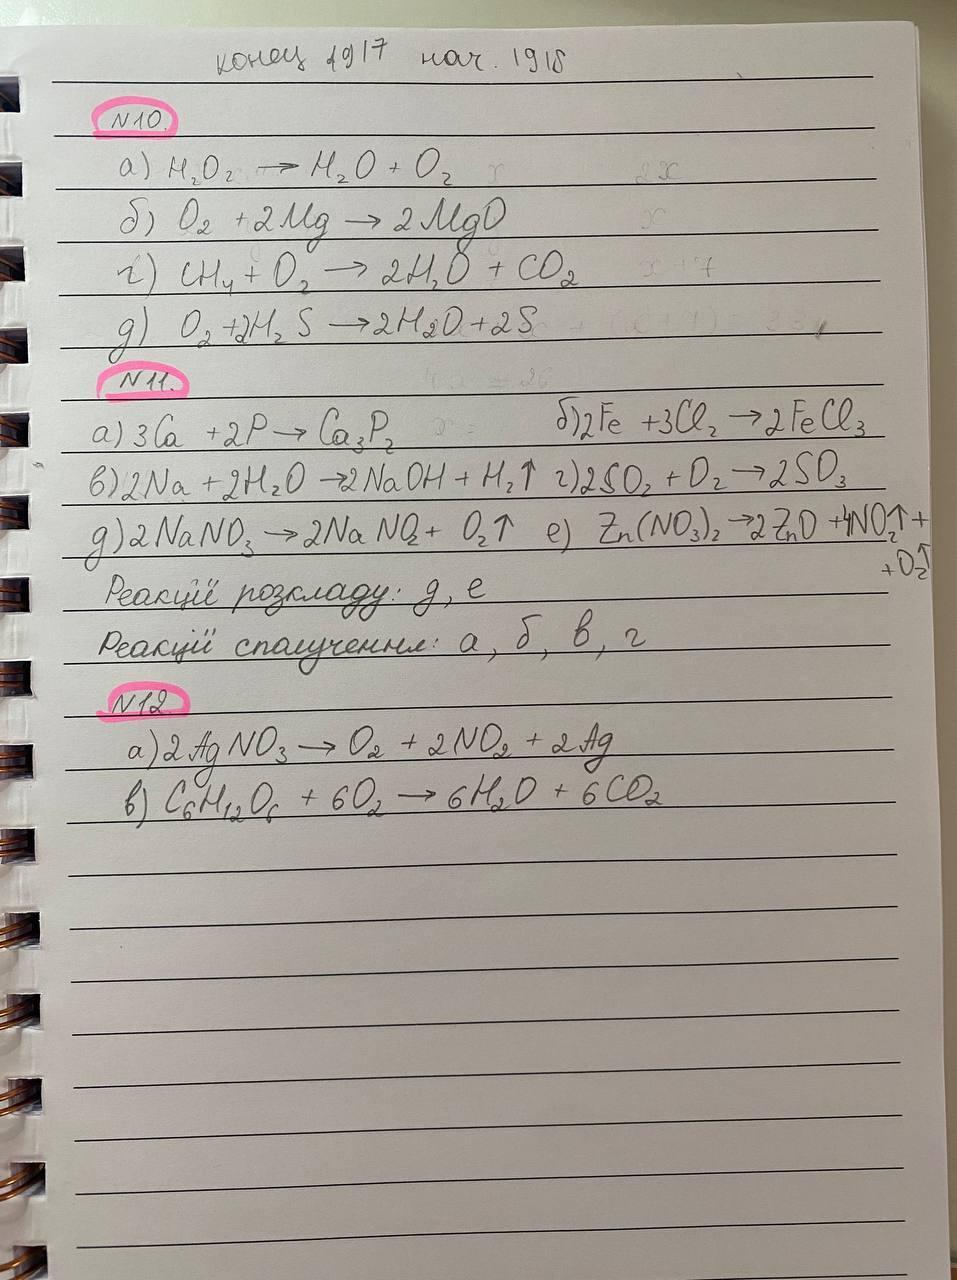 конец 1917 нач. 1918
N10.
а) H₂O₂ → H₂O + O₂
б) O₂ + 2Mg → 2MgO
г) CH₄ + O₂ → 2H₂O + CO₂
д) O₂ + 2H₂S → 2H₂O + 2S
N11.
а) 3Ca + 2P → Ca₃P₂ б) 2Fe + 3Cl₂ → 2FeCl₃
в) 2Na + 2H₂O → 2NaOH + H₂↑ г) 2SO₂ + O₂ → 2SO₃
д) 2NaNO₃ → 2NaNO₂ + O₂↑ е) Zn(NO₃)₂ → 2ZnO + 4NO₂↑ +
+ O₂↑
Реакції розкладу: д, е
Реакції сполучення: а, б, в, г
N12.
а) 2AgNO₃ → O₂ + 2NO₂ + 2Ag
в) C₆H₁₂O₆ + 6O₂ → 6H₂O + 6CO₂